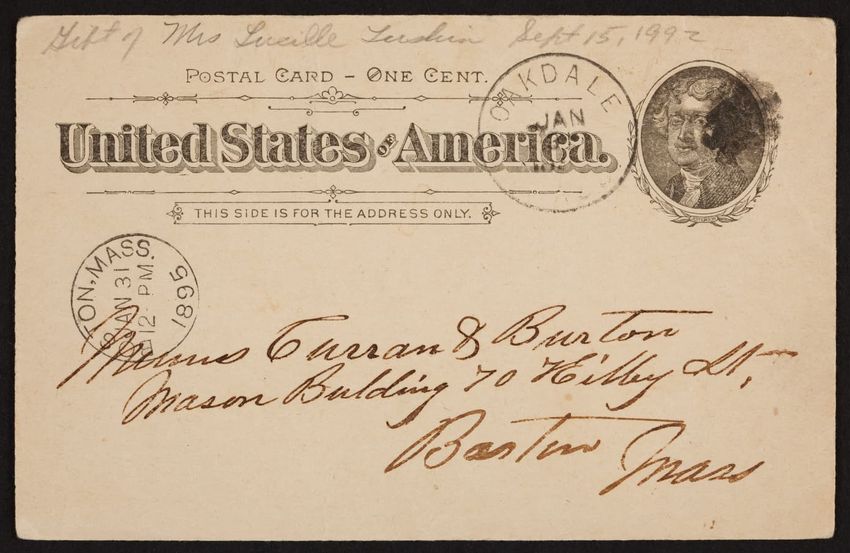 Gift of Mrs Lucille Sept 15, 1992
POSTAL CARD – ONE CENT.
OAKDALE
JAN
United States OF America.
THIS SIDE IS FOR THE ADDRESS ONLY.
TON, MASS. 1895
JAN 31
12 PM.
Messrs Curran & Burton
Mason Bulding 70 Kilby St,
Boston Mass